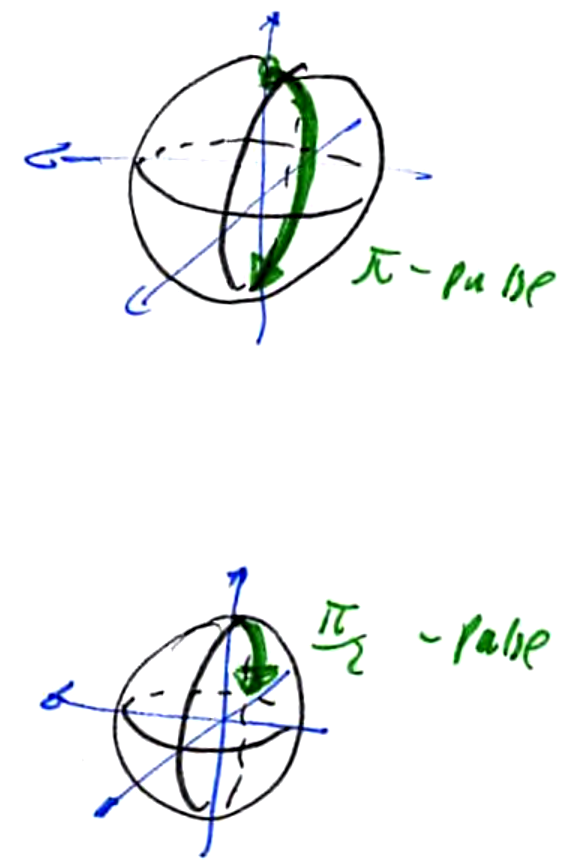 π - pulse
π/2 - pulse